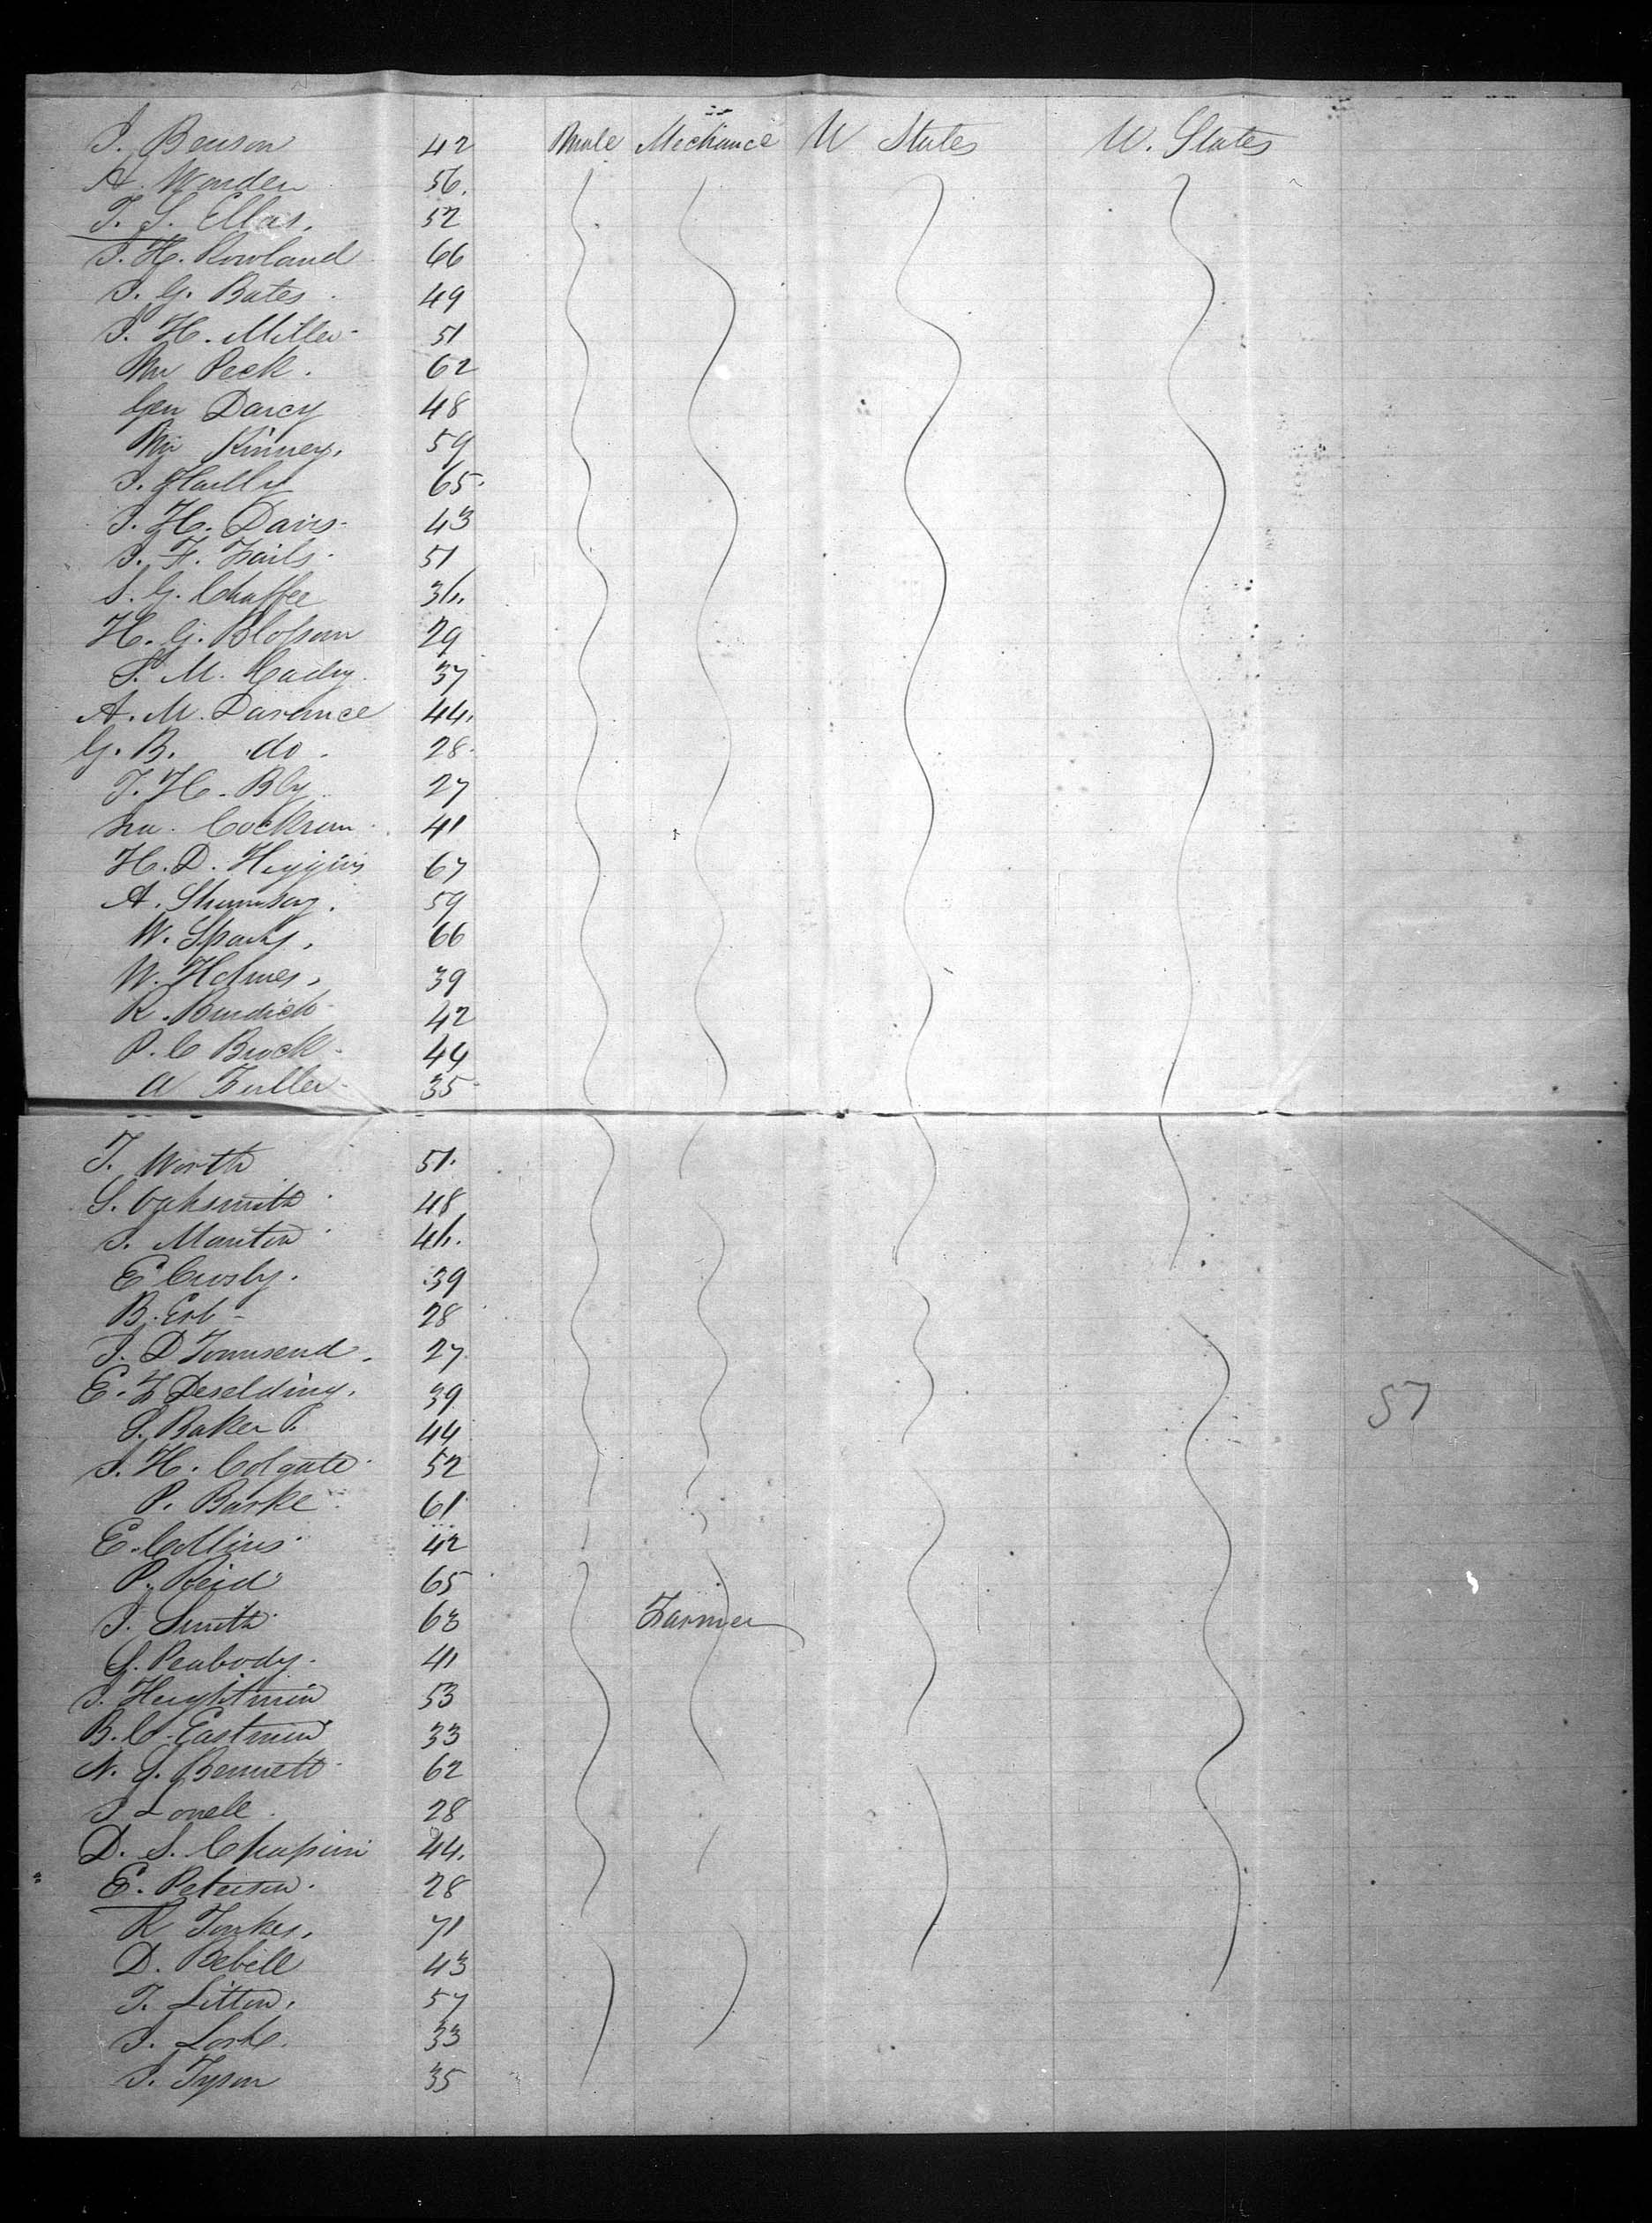 J. Benson 42 Male Mechanic U States U. States
A. Worden 56.
T. S. Ellas. 52
J. H. Rowland 66
J. G. Bates 49
J. H. Miller 51
Mr Peck. 62
Gen Darcy 48
Mr Kinney. 59
J. 65.
J. H. Davis 43
J. F. Fails 51
S. G. Chaffee 36.
H. G. Blossom 29
S. M. Cady 37
A. M. 44.
G. B. do. 28.
T. H. Bly 27
41
H. D. Higgins 67
A. Shumway. 59
W. 66
W. Holmes, 39
R. Burdick 42
P. C Brock 44
W Fuller 35
T. Worth 51.
S. Oaksmith 48
J. Manton 46.
E Crosby. 39
B. Erb 28
J. D Townsend. 27
E. F Deselding. 39
S. Baker P. 44
J. H. Colgate 52
P. 61
E. Collins 42
P. Reid 65
J. Smith 63 Farmer
G. Peabody. 41
J. 53
B. C. Eastman 33
N. S. Bennett 62
J Lovell 28
D. S. Chapin 44.
E. Peterson. 28
R 71
D. 43
T. Litton. 57
J. 33
J. Tyson 35
57